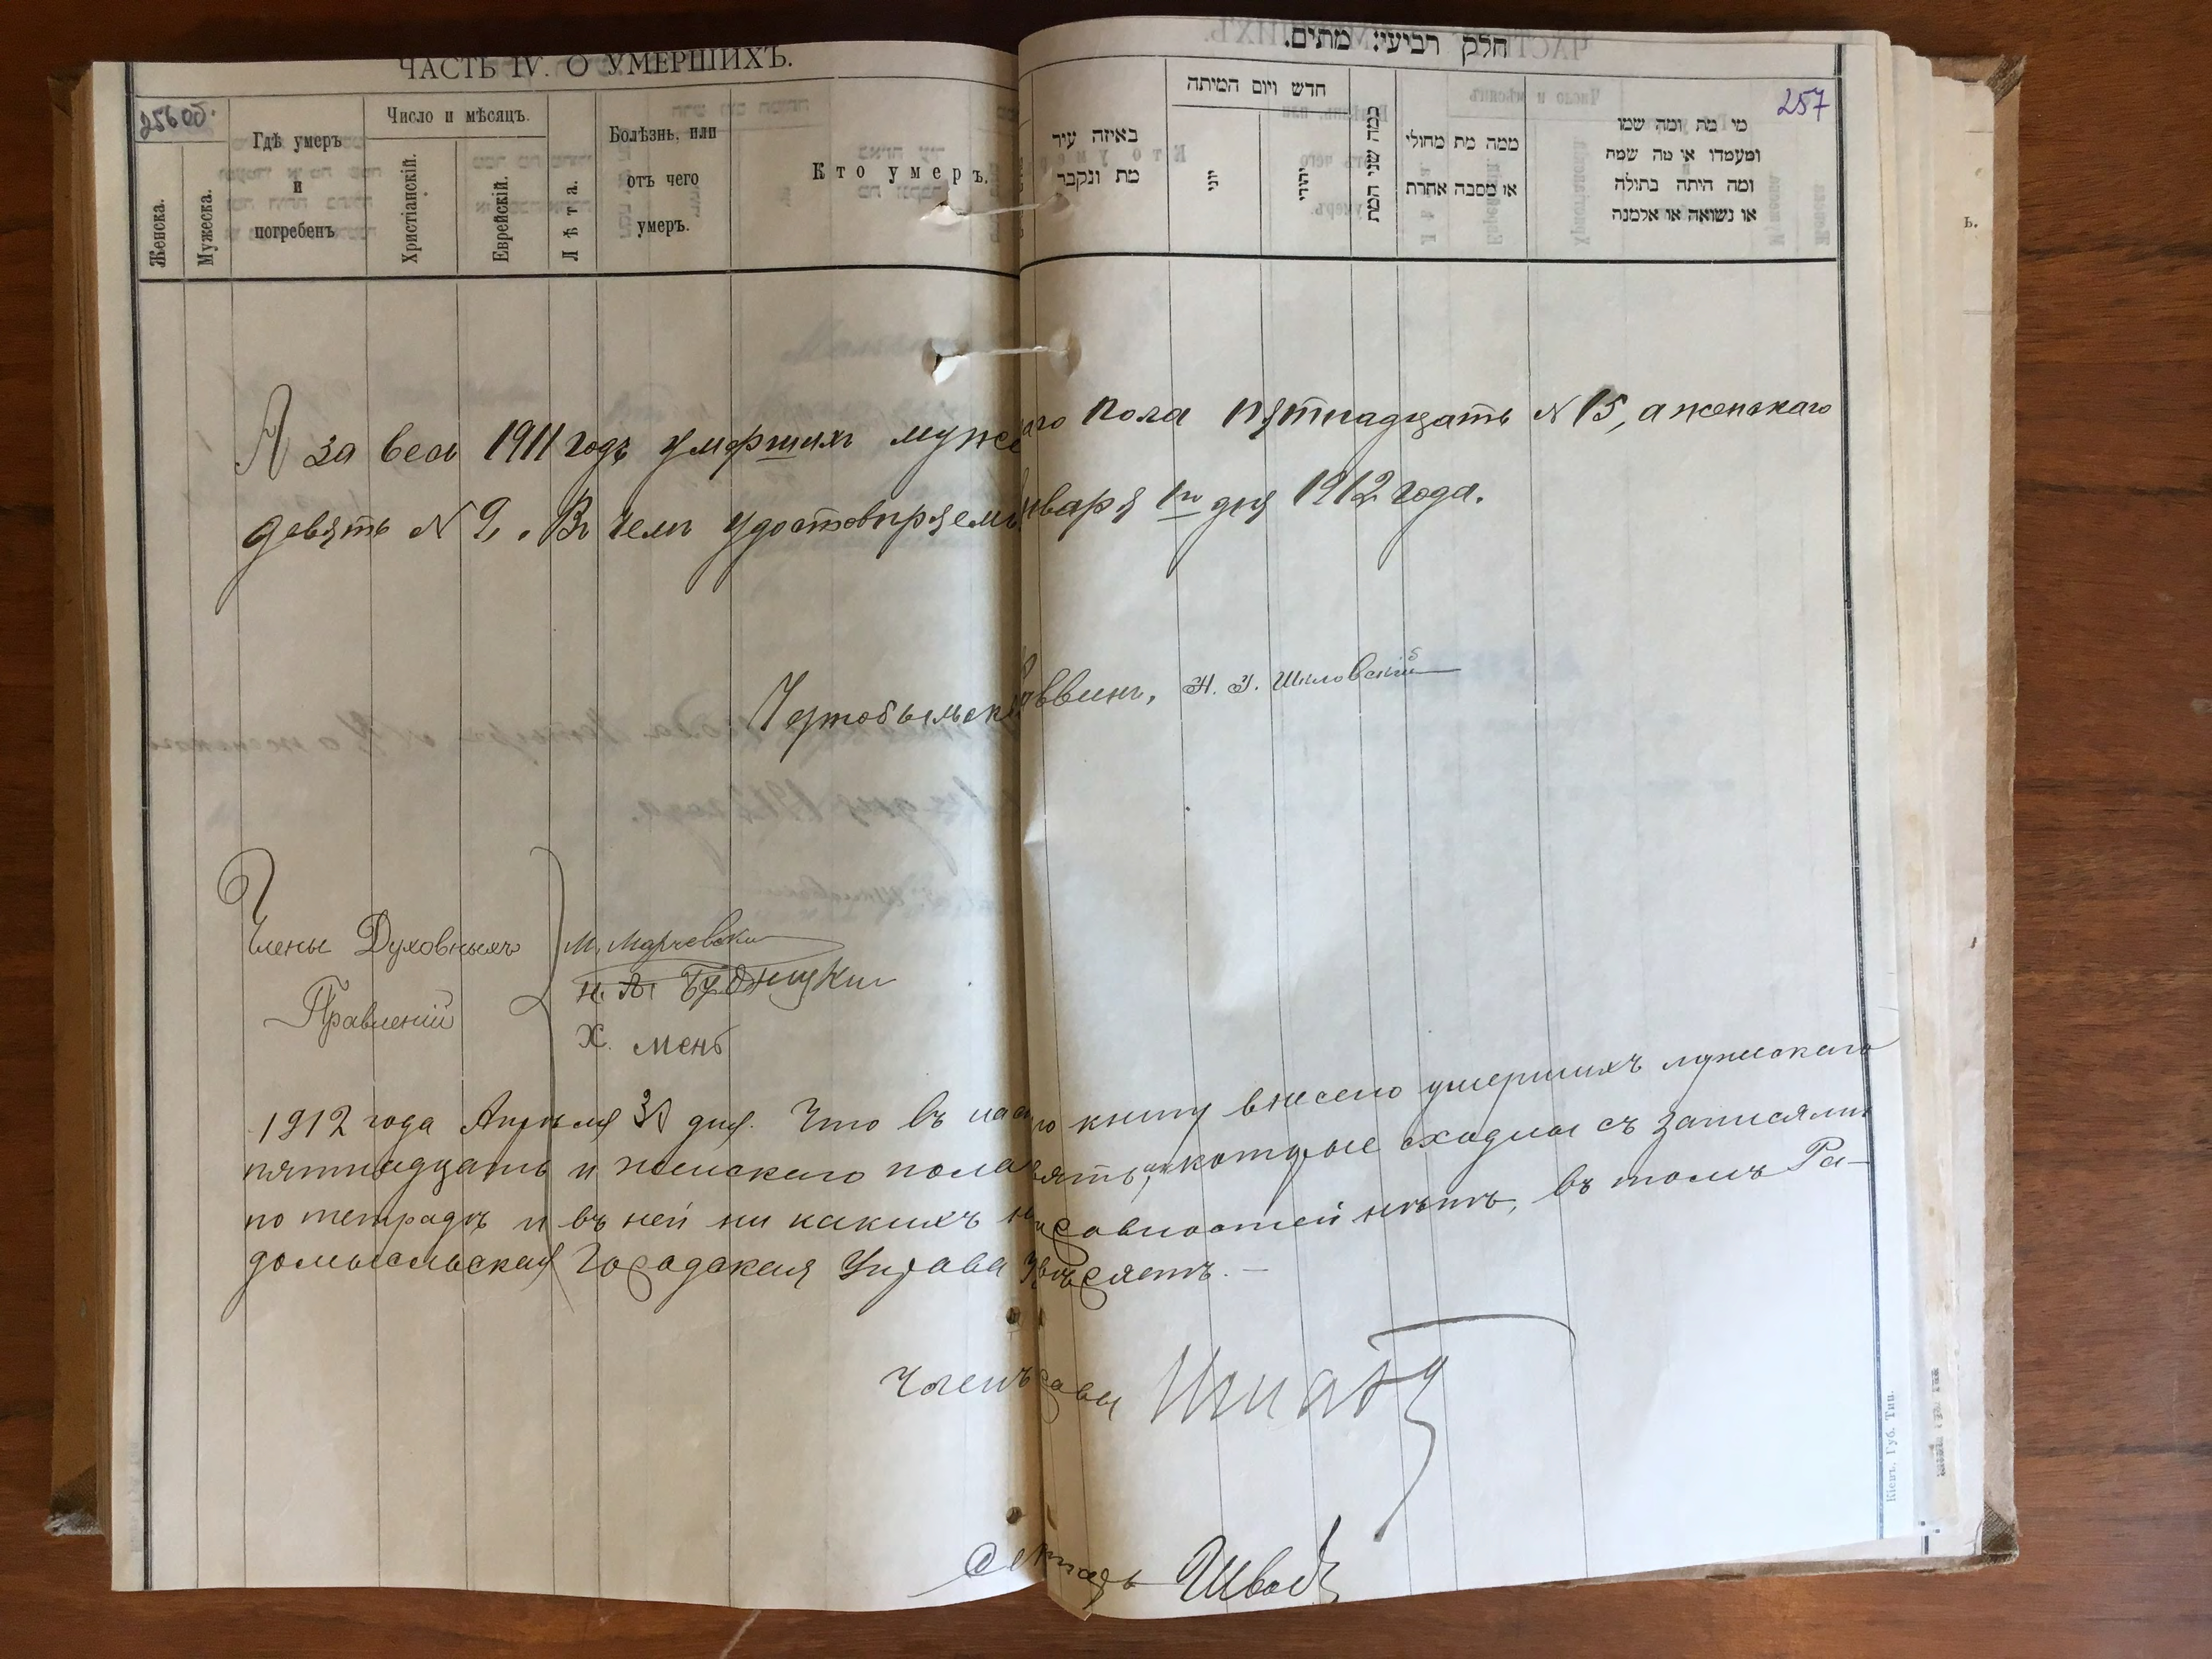 ЧАСТЬ IV. О УМЕРШИХЪ.
256об.
Женска.
Мужеска.
Гдѣ умеръ
и
погребенъ
Число и мѣсяцъ.
Христіанскій.
Еврейскій.
Лѣта.
Болѣзнь, или
отъ чего
умеръ.
Кто умеръ.
חלק רביעי: מתים.
257
באיזה עיר
מת ונקבר
חדש ויום המיתה
יוני
יהודי
כמה שני המת
ממה מת מחולי
או מסבה אחרת
מי מת ומה שמו
ומעמדו או מה שמה
ומה היתה בתולה
או נשואה או אלמנה
А за весь 1911 годъ умершихъ муже аго пола пятнадцать N 15, а женскаго
девять N 9, . Въ чемъ удостовѣряемъ нваря 1го дня 1912 года.
аввинъ, Шкловскій
Члены Духовныхъ
Правленій
М. Марчевски
Х. Менъ
1912 года Апрѣля дня. Что въ нас ю книгу внесено умершихъ мужескаго
пятнадцать и женскаго пола вять, которые сходны съ записями
по тетрадѣ и въ ней ни какихъ н справностей нѣтъ, въ томъ Ра-
домысльская Городская Управа Увѣряетъ. —
Членъ равы
Секретарь Швос
Кіевъ, Губ. Тип.